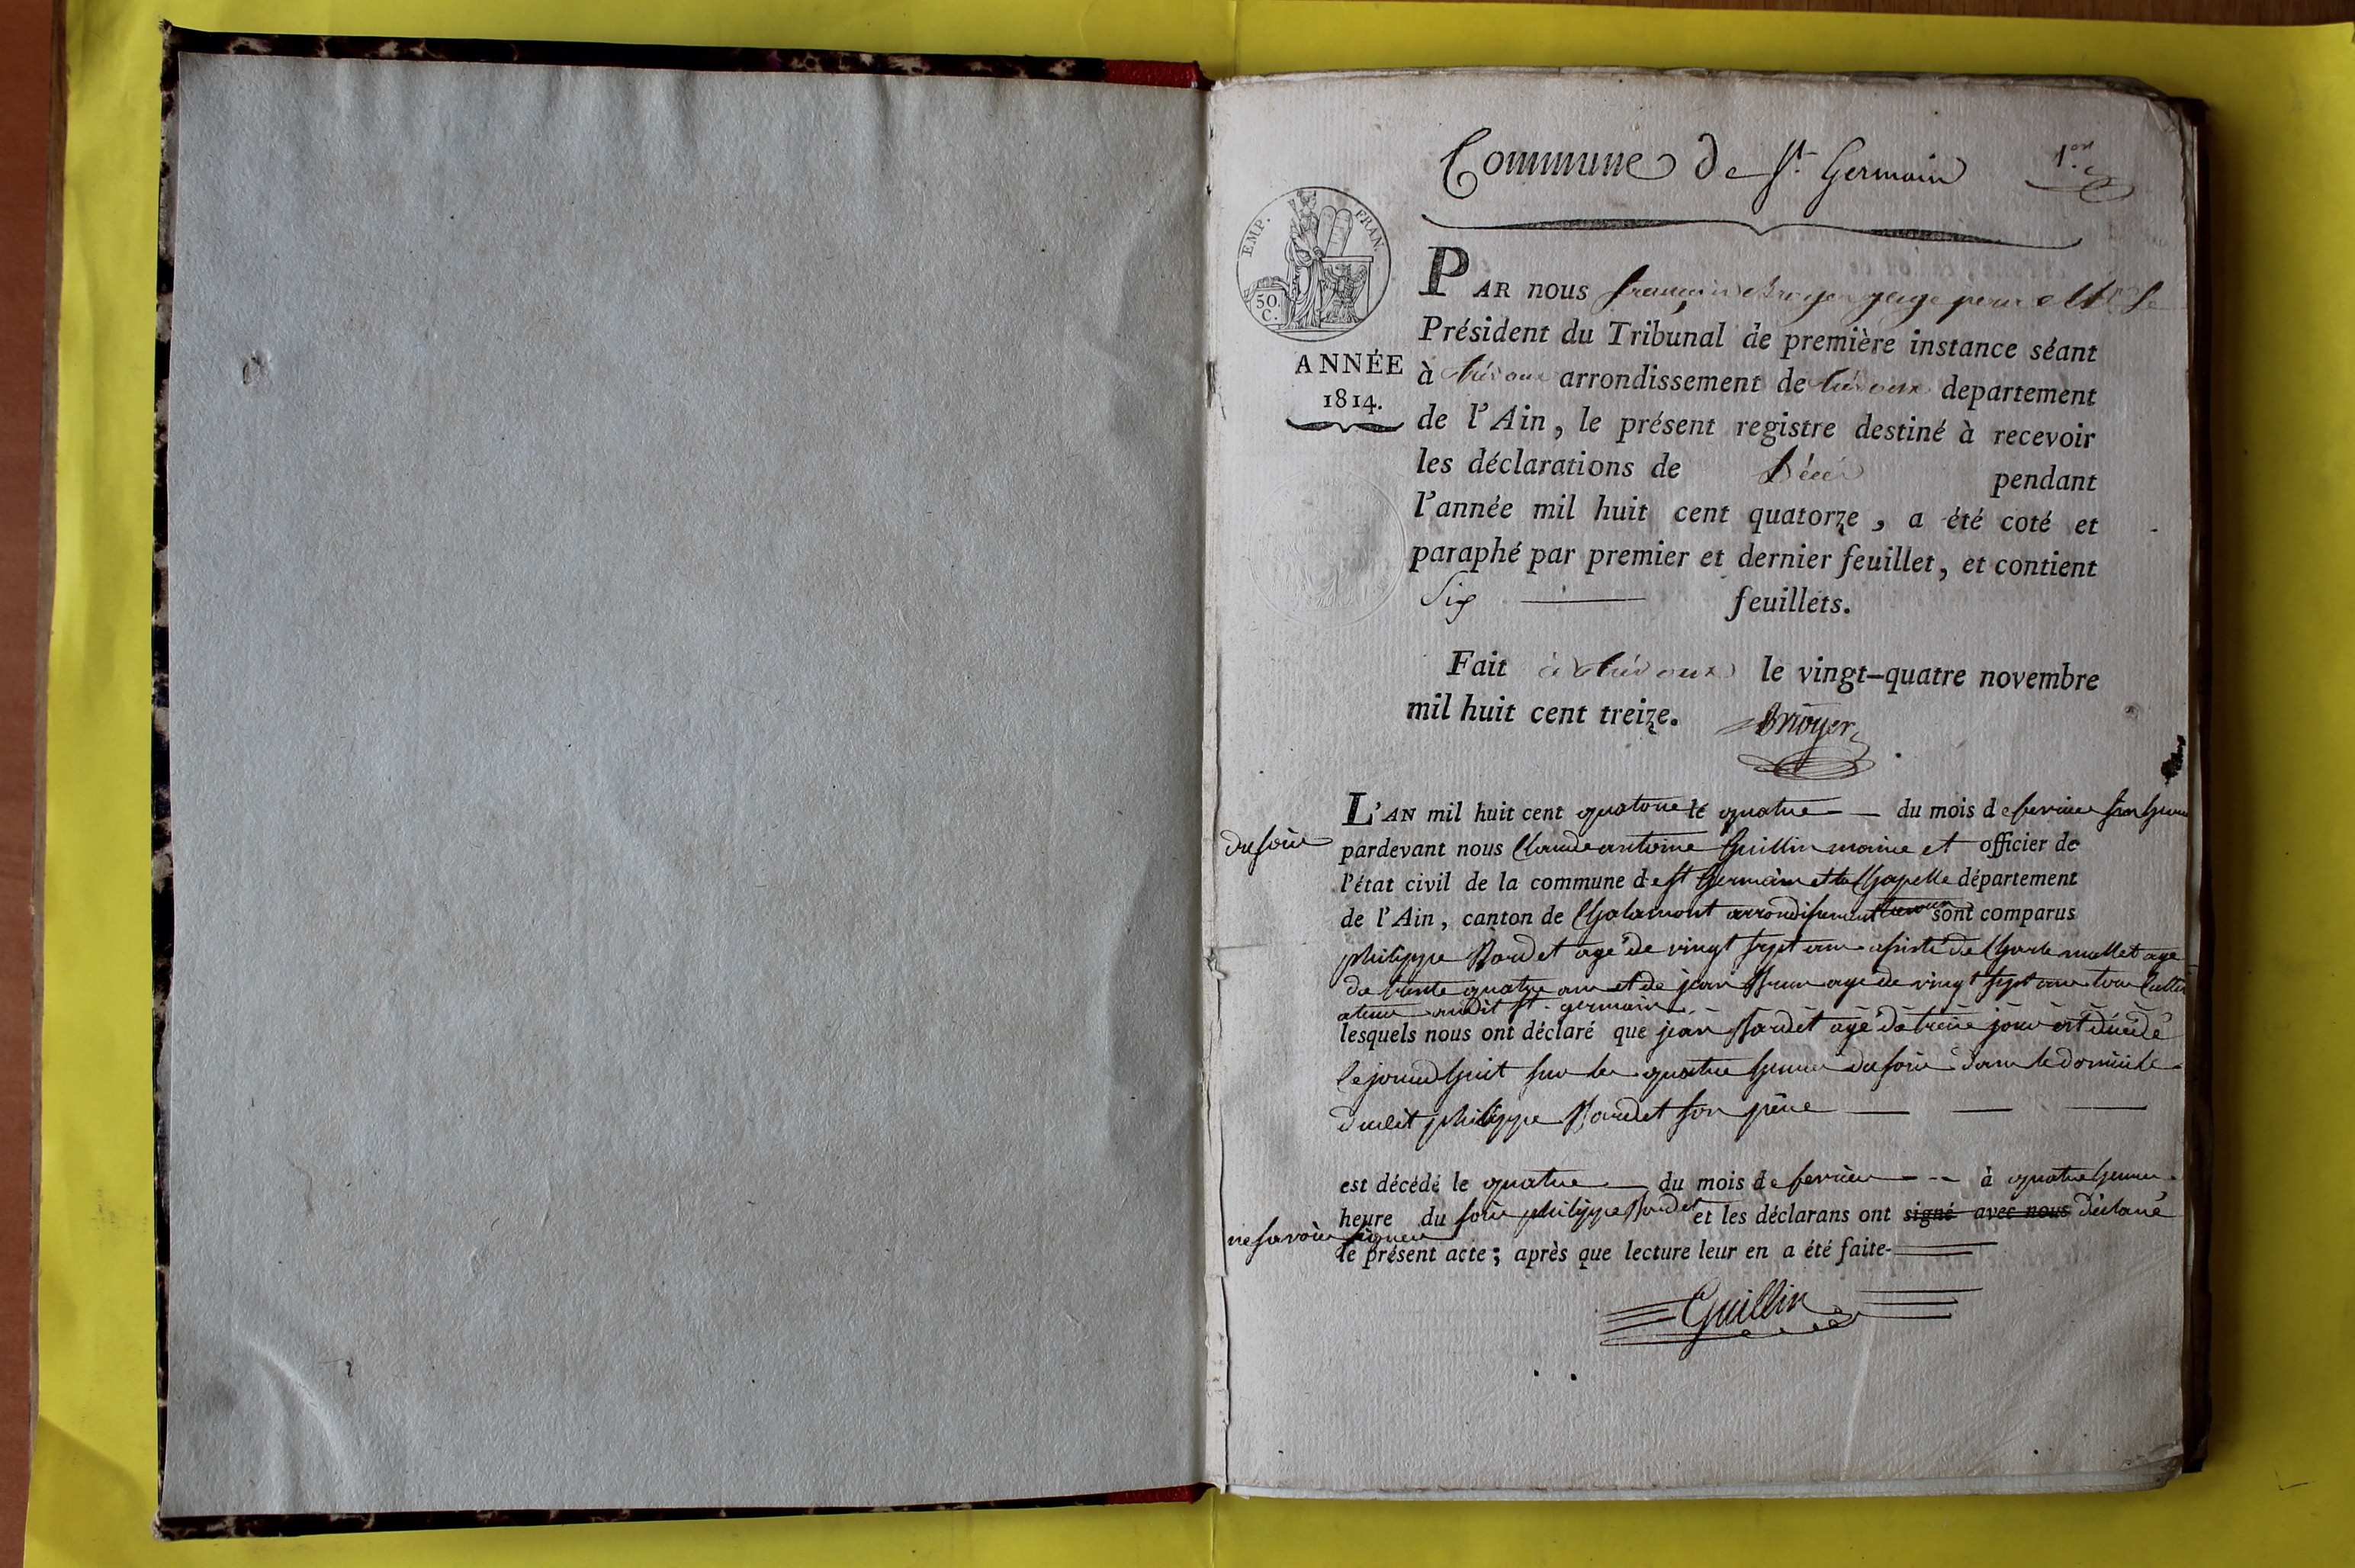 Commune de St. Germain
1er
EMP. FRAN.
50. C.
ANNÉE
1814.
PAR nous françois Broyer juge pour Mr. le
Président du Tribunal de première instance séant
à trévoux arrondissement de trévoux departement
de l'Ain, le présent registre destiné à recevoir
les déclarations de Décès pendant
l'année mil huit cent quatorze, a été coté et
paraphé par premier et dernier feuillet, et contient
Six feuillets.
Fait à trévoux le vingt-quatre novembre
mil huit cent treize. Broyer
L'AN mil huit cent quatorze le quatre du mois de fevrier
du soir
pardevant nous Claude antoine Guillin maire et officier de
l'état civil de la commune de st Germain et la Chapelle département
de l'Ain, canton de Chalamont arrondissement trevoux sont comparus
philippe Bardet agé de vingt sept ans assisté de Charle mallet agé
de trente quatre ans et de jean agé de vingt sept ans tous cultiv
ateurs audit st. germain
lesquels nous ont déclaré que jean Bardet agé de treize jours est décédé
sur les quatre heures du soir dans le domicile
dudit philippe Bardet son père
est décédé le quatre du mois de fevrier à quatre heures
heure du soir philippe Bardet et les déclarans ont signé avec nous déclaré
ne savoir signer
le présent acte; après que lecture leur en a été faite
Guillin